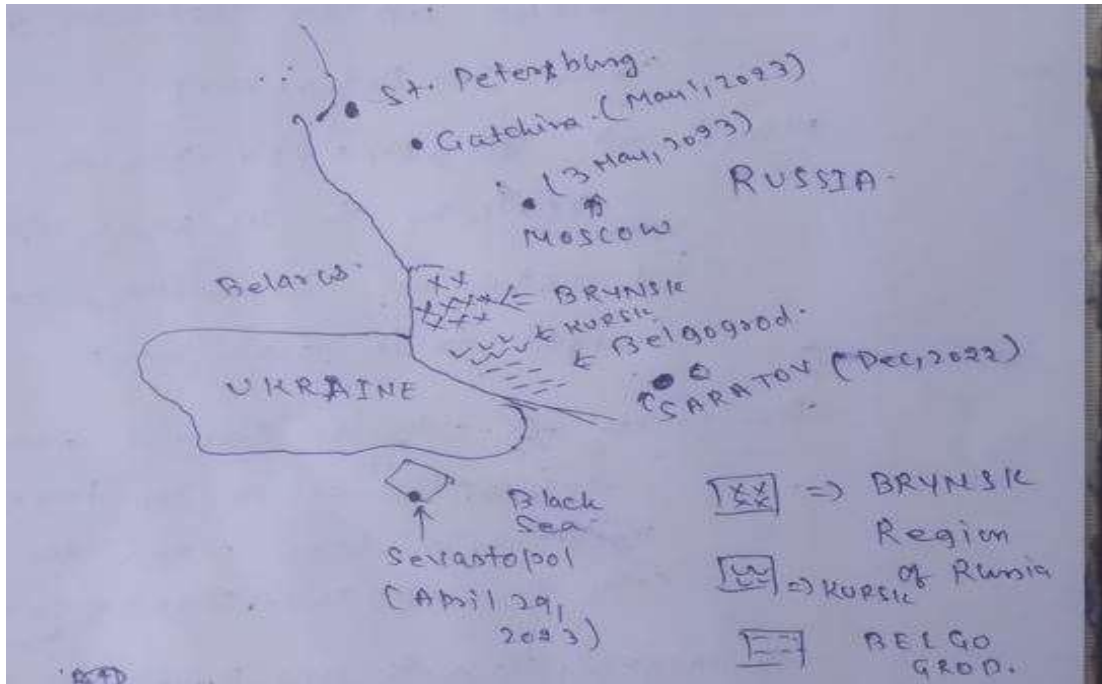 St. Petersburg.
Gatchina. (May 1, 2023)
(3 May, 2023)
RUSSIA.
MOSCOW
Belarus.
BRYNSK
KURSK
Belgogrod.
UKRAINE
SARATOV (Dec, 2022)
Black
Sea
Sevastopol
(April 29,
2023)
XX => BRYNSK
Region
of Russia
=> KURSK
BELGO
GROD.